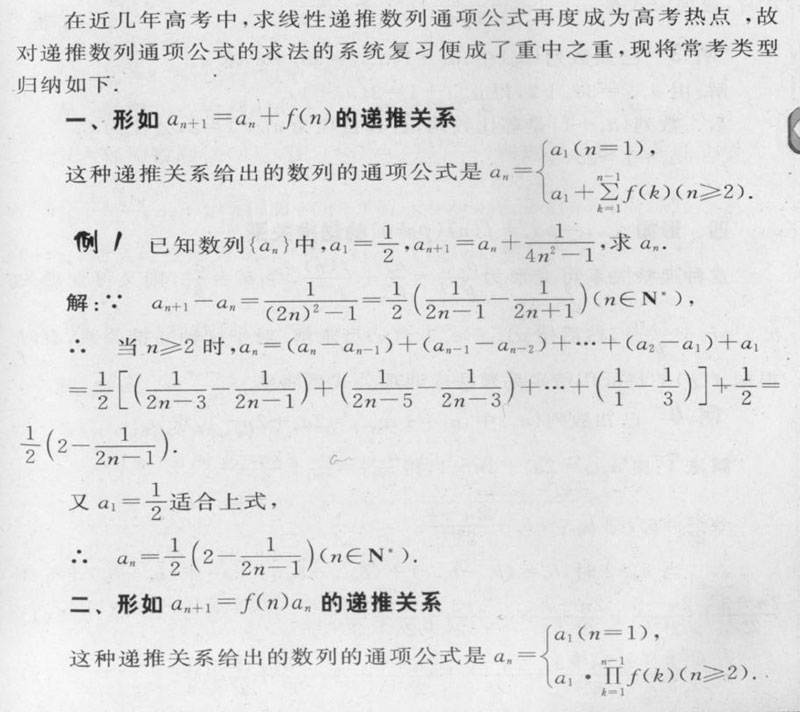 在近几年高考中,求线性递推数列通项公式再度成为高考热点,故
对递推数列通项公式的求法的系统复习便成了重中之重,现将常考类型
归纳如下.
一、形如 aₙ₊₁=aₙ+f(n)的递推关系
这种递推关系给出的数列的通项公式是 aₙ={a₁(n=1), a₁+∑_{k=1}^{n-1}f(k)(n≥2).
例1 已知数列{aₙ}中,a₁=1/2,aₙ₊₁=aₙ+1/(4n²-1),求 aₙ.
解:∵ aₙ₊₁-aₙ=1/((2n)²-1)=1/2(1/(2n-1)-1/(2n+1))(n∈N*),
∴ 当 n≥2 时,aₙ=(aₙ-aₙ₋₁)+(aₙ₋₁-aₙ₋₂)+…+(a₂-a₁)+a₁
=1/2[(1/(2n-3)-1/(2n-1))+(1/(2n-5)-1/(2n-3))+…+(1/1-1/3)]+1/2=
1/2(2-1/(2n-1)).
又 a₁=1/2适合上式,
∴ aₙ=1/2(2-1/(2n-1))(n∈N*).
二、形如 aₙ₊₁=f(n)aₙ 的递推关系
这种递推关系给出的数列的通项公式是 aₙ={a₁(n=1), a₁·∏_{k=1}^{n-1}f(k)(n≥2).